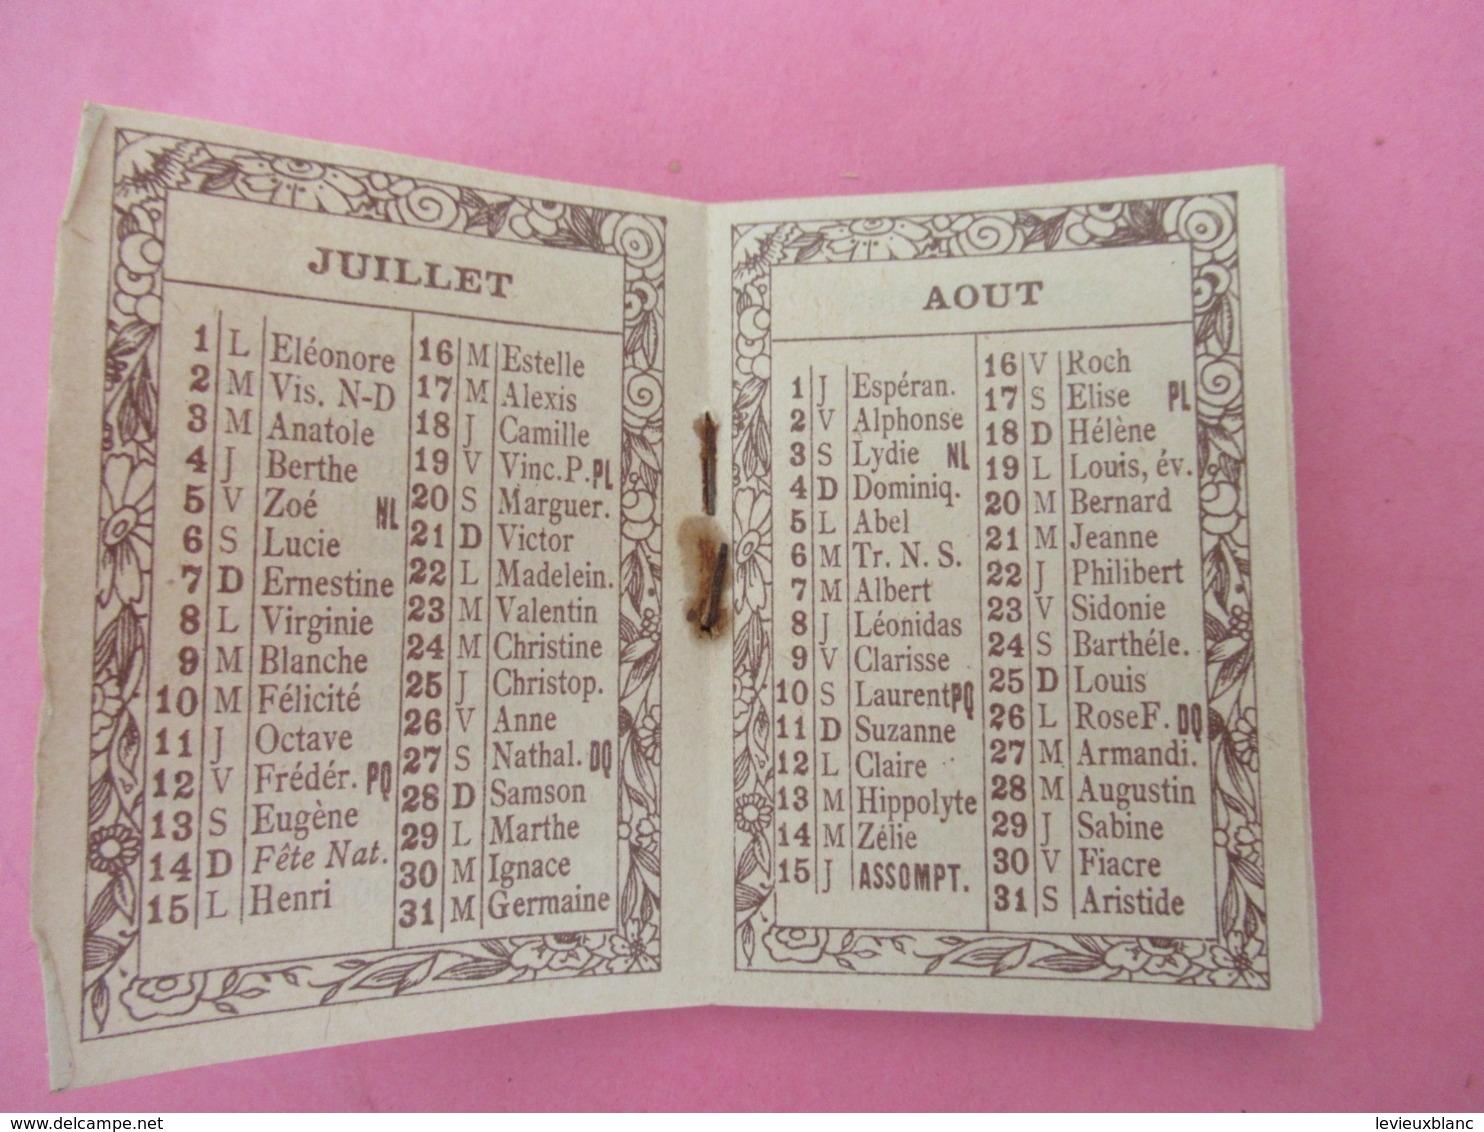 JUILLET
1 L Eléonore
2 M Vis. N-D
3 M Anatole
4 J Berthe
5 V Zoé NL
6 S Lucie
7 D Ernestine
8 L Virginie
9 M Blanche
10 M Félicité
11 J Octave
12 V Frédér. PQ
13 S Eugène
14 D Fête Nat.
15 L Henri
16 M Estelle
17 M Alexis
18 J Camille
19 V Vinc.P. PL
20 S Marguer.
21 D Victor
22 L Madelein.
23 M Valentin
24 M Christine
25 J Christop.
26 V Anne
27 S Nathal. DQ
28 D Samson
29 L Marthe
30 M Ignace
31 M Germaine
AOUT
1 J Espéran.
2 V Alphonse
3 S Lydie NL
4 D Dominiq.
5 L Abel
6 M Tr. N. S.
7 M Albert
8 J Léonidas
9 V Clarisse
10 S Laurent PQ
11 D Suzanne
12 L Claire
13 M Hippolyte
14 M Zélie
15 J ASSOMPT.
16 V Roch
17 S Elise PL
18 D Hélène
19 L Louis, év.
20 M Bernard
21 M Jeanne
22 J Philibert
23 V Sidonie
24 S Barthéle.
25 D Louis
26 L Rose F. DQ
27 M Armandi.
28 M Augustin
29 J Sabine
30 V Fiacre
31 S Aristide
www.delcampe.net
levieuxblanc